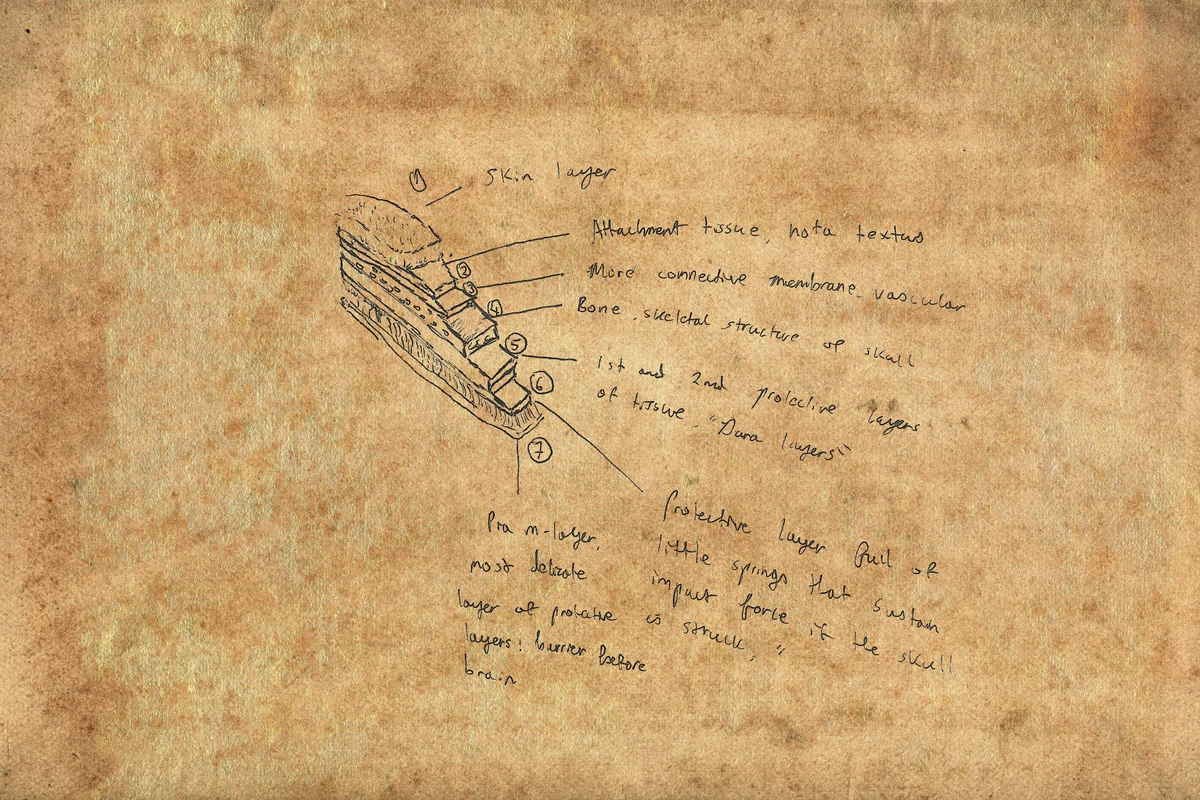 ① Skin layer
Attachment tissue, nota textus
② More connective membrane, vascular
③
④ Bone, skeletal structure of skull
⑤ 1st and 2nd protective layers
of tissue. "Dura layers"
⑥
⑦
Protective layer full of
little springs that sustain
impact force if the skull
is struck, "
Pia m-layer,
most delicate
layer of protective
layers: barrier before
brain